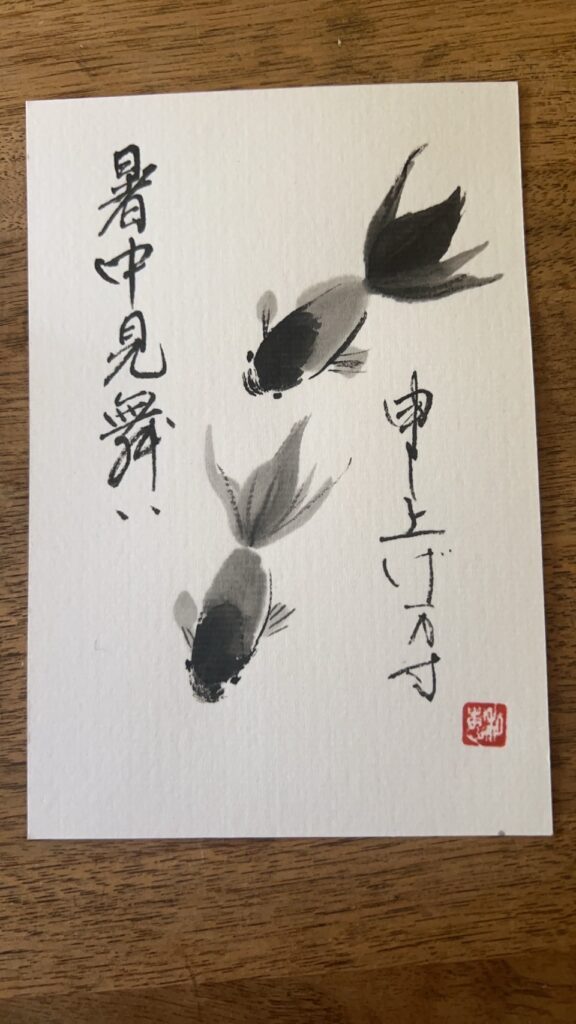 暑中見舞い
申し上げます